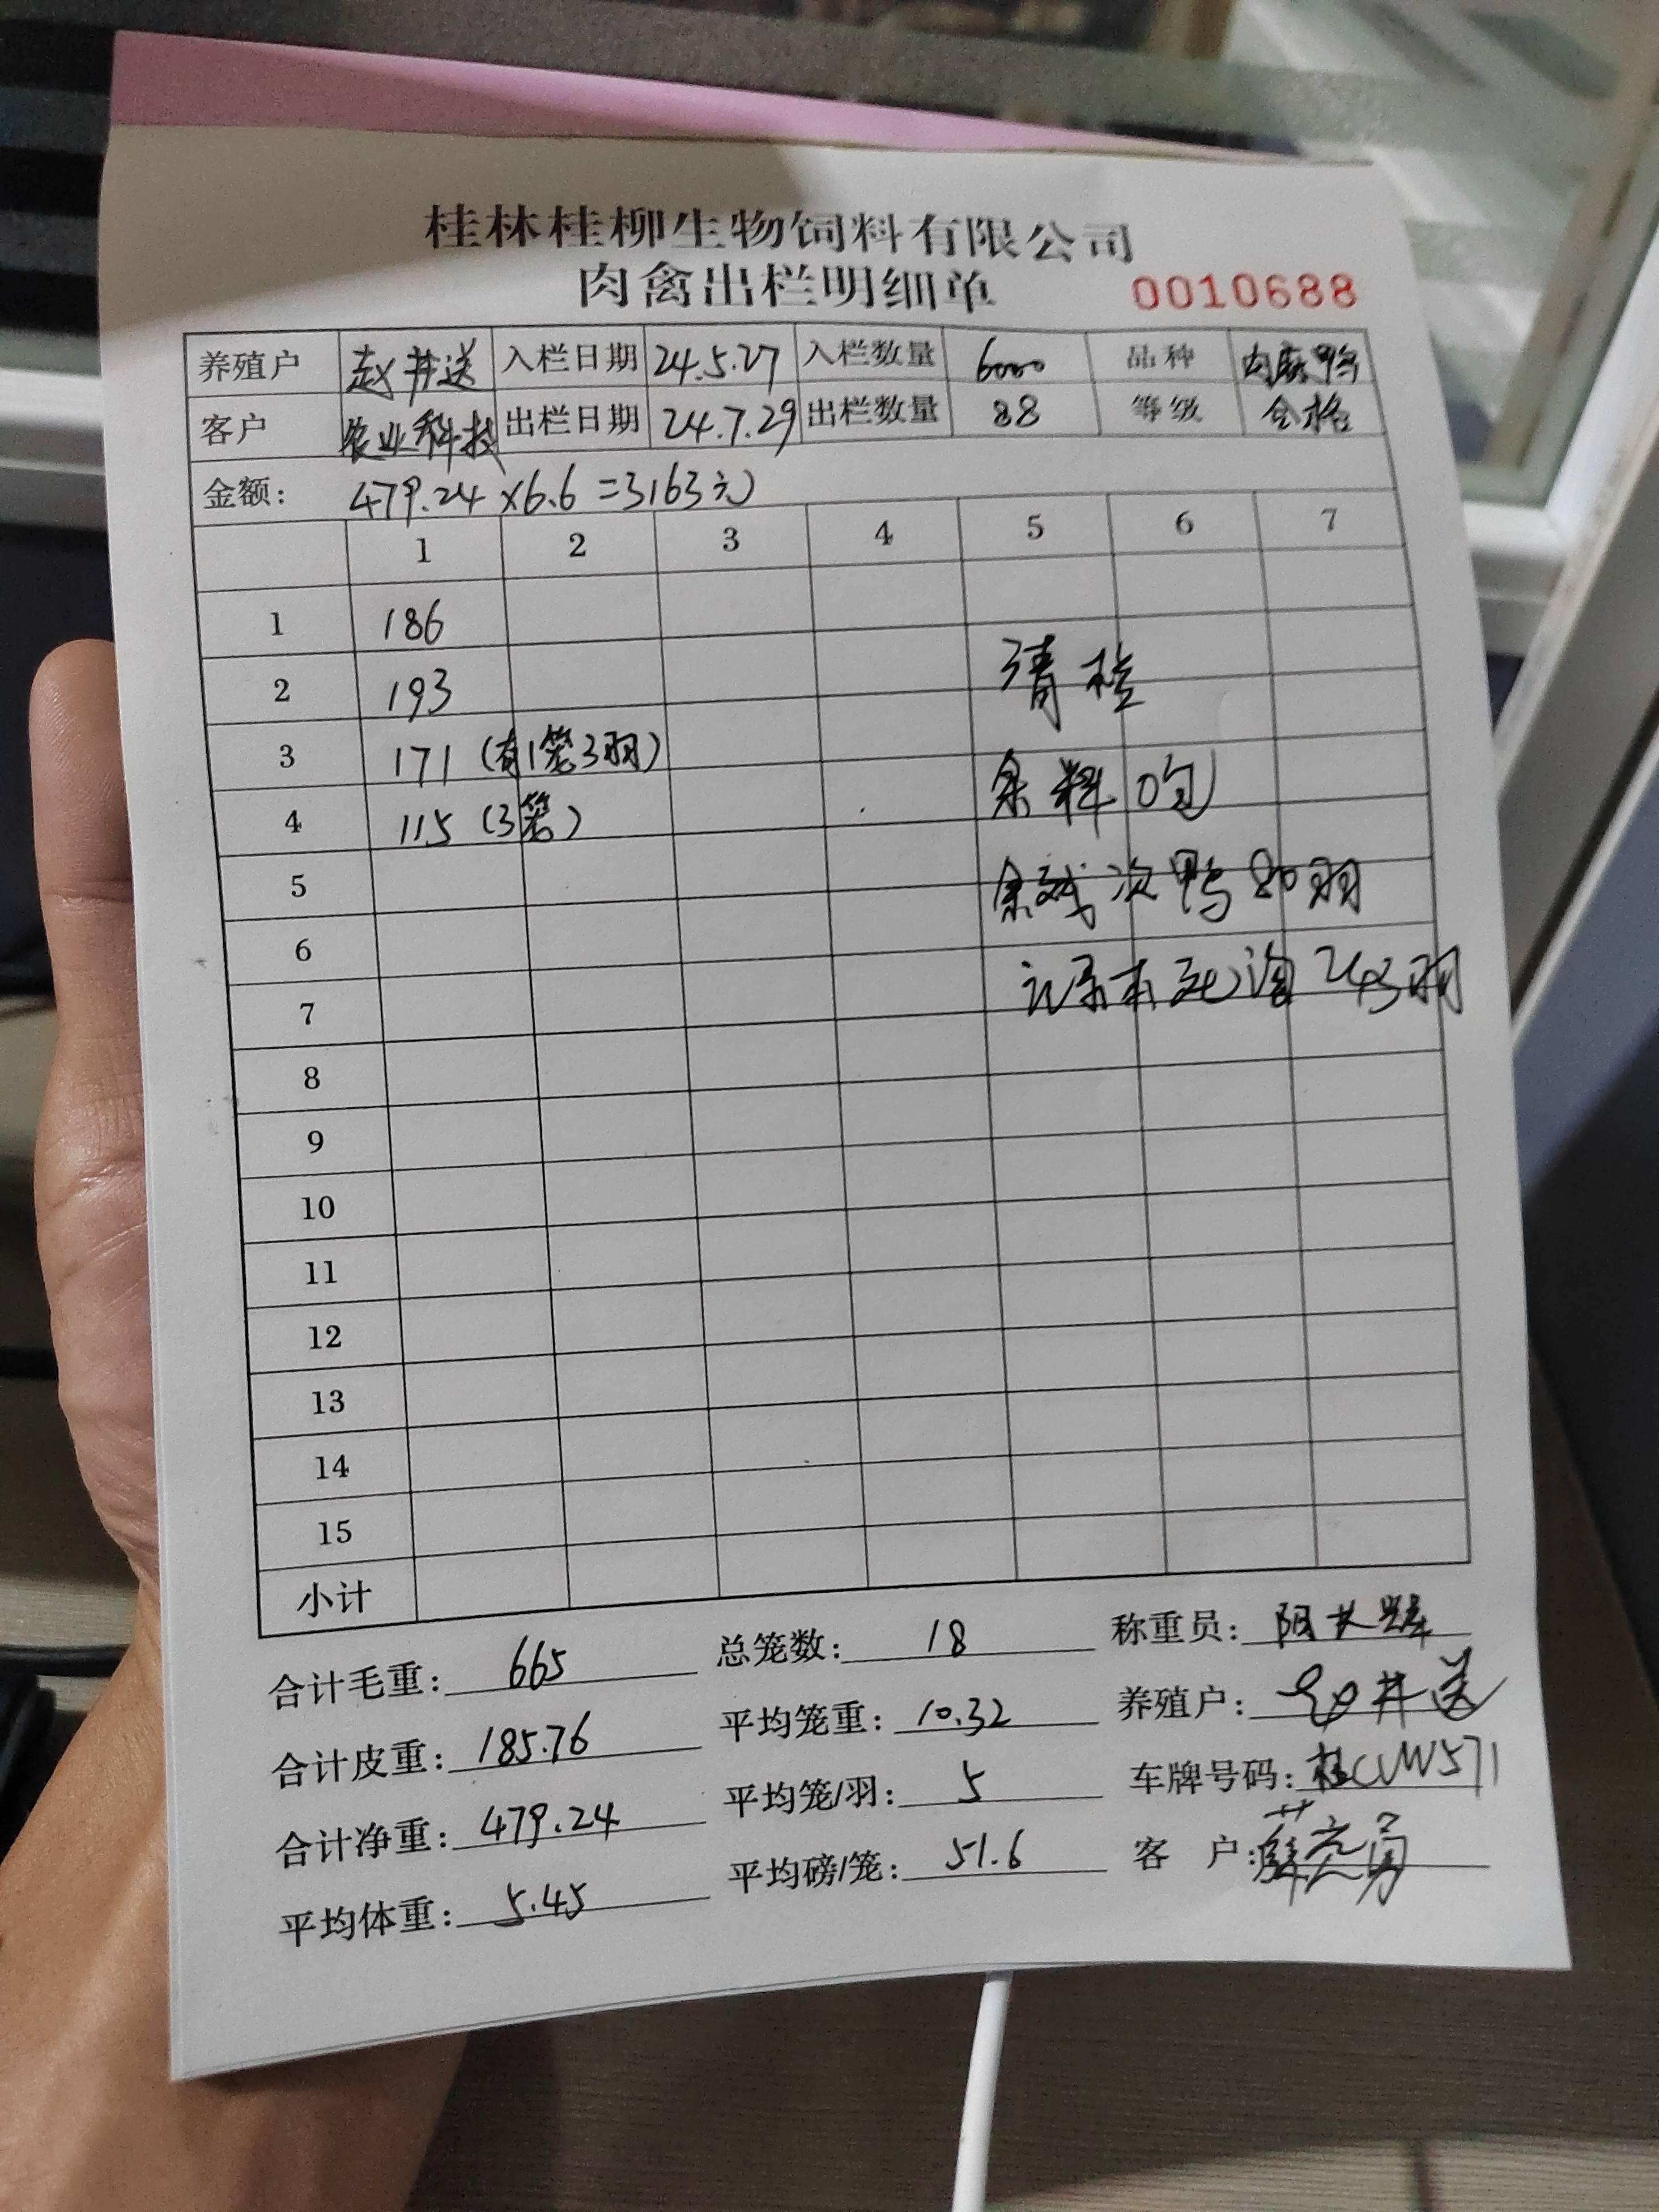 桂林桂柳生物饲料有限公司
肉禽出栏明细单 0010688
养殖户 赵井送 入栏日期 24.5.27 入栏数量 6000 品种 肉麻鸭
客户 农业科技 出栏日期 24.7.29 出栏数量 88 等级 合格
金额: 479.24×6.6=3163元
1 2 3 4 5 6 7
1 186
2 193 清栏
3 171 (有1笼3羽)
4 115 (3笼) 余料0包
5 余残次鸭80羽
6
7 记录本死淘243羽
8
9
10
11
12
13
14
15
小计
合计毛重: 665 总笼数: 18 称重员:
合计皮重: 185.76 平均笼重: 10.32 养殖户: 赵井送
合计净重: 479.24 平均笼/羽: 5 车牌号码: 桂CVW571
平均体重: 5.45 平均磅/笼: 51.6 客 户: